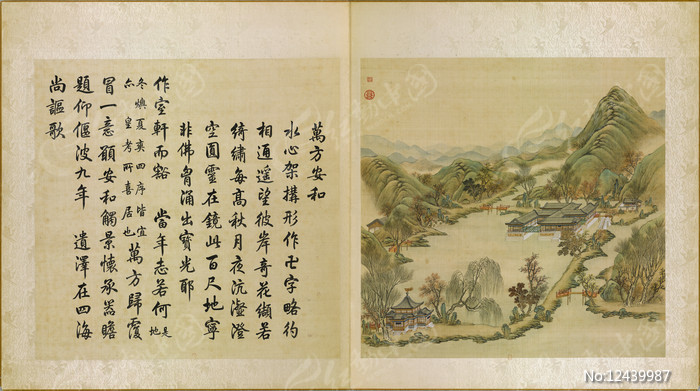 萬方安和
水心架構形作卍字略彴
相通遥望彼岸奇花纈若
綺繡每高秋月夜沆瀣澄
空圓靈在鏡此百尺地寧
非佛胷涌出寶光耶
作室軒而豁 當年志若何 是地
冬燠夏凉四序皆宜
亦 皇考所喜居也 萬方歸覆
冒一意願安和觸景懷承器瞻
題仰偃波九年 遺澤在四海
尚謳歌
No:12439987